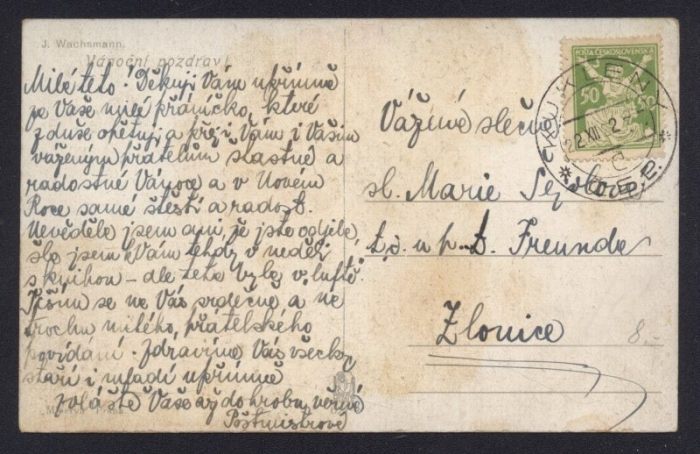 J. Wachsmann.
Vánoční pozdrav!
Milá teto! Děkuji Vám upřímně
za Vaše milé přáníčko, které
z duše opětuji a přeji Vám i Vašim
váženým přátelům šťastné a
radostné Vánoce a v Novém
Roce samé štěstí a radost.
Nevěděla jsem ani, že jste odjela,
šla jsem k Vám tehdy v neděli
s knihou – ale teta byla v luftě.
Těším se na Vás srdečně a na
trochu milého, přátelského
povídání. Zdravíme Vás všecky
staří i mladí upřímně
zvláště Vaše až do hrobu věrné
Poštmistrově
POŠTA ČESKOSLOVENSKÁ
50 50
22.XII.2
Vážená slečna
sl. Marie
t.č. u p. t. Freunda
Zlonice
8,-